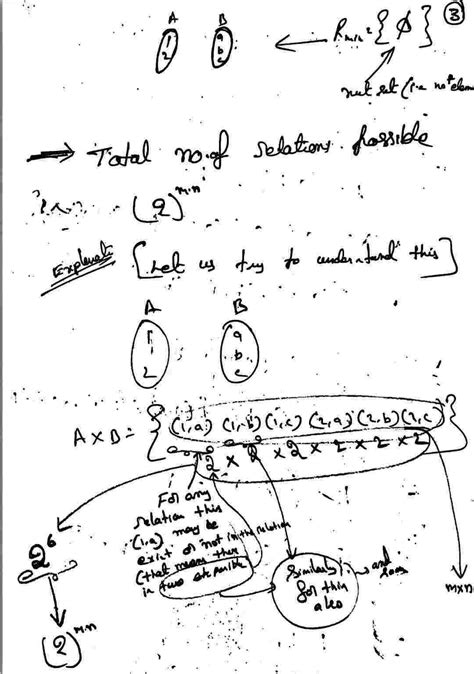 3
A B
1 a
2 b
c
← Rmin = { ϕ }
null set (i.e. no elem
→ Total no. of relations possible
(2)^m.n
Explanati [Let us try to understand this]
A B
1 a
2 b
c
A×B = { (1,a) (1,b) (1,c) (2,a) (2,b) (2,c) }
2 × 2 × 2 × 2 × 2 × 2
For any
relation this
(1,a) may be
exist or not in the relation
(that means there
in two are possible
2^6
Similarly
for this
also
and
m×n
(2)^m.n